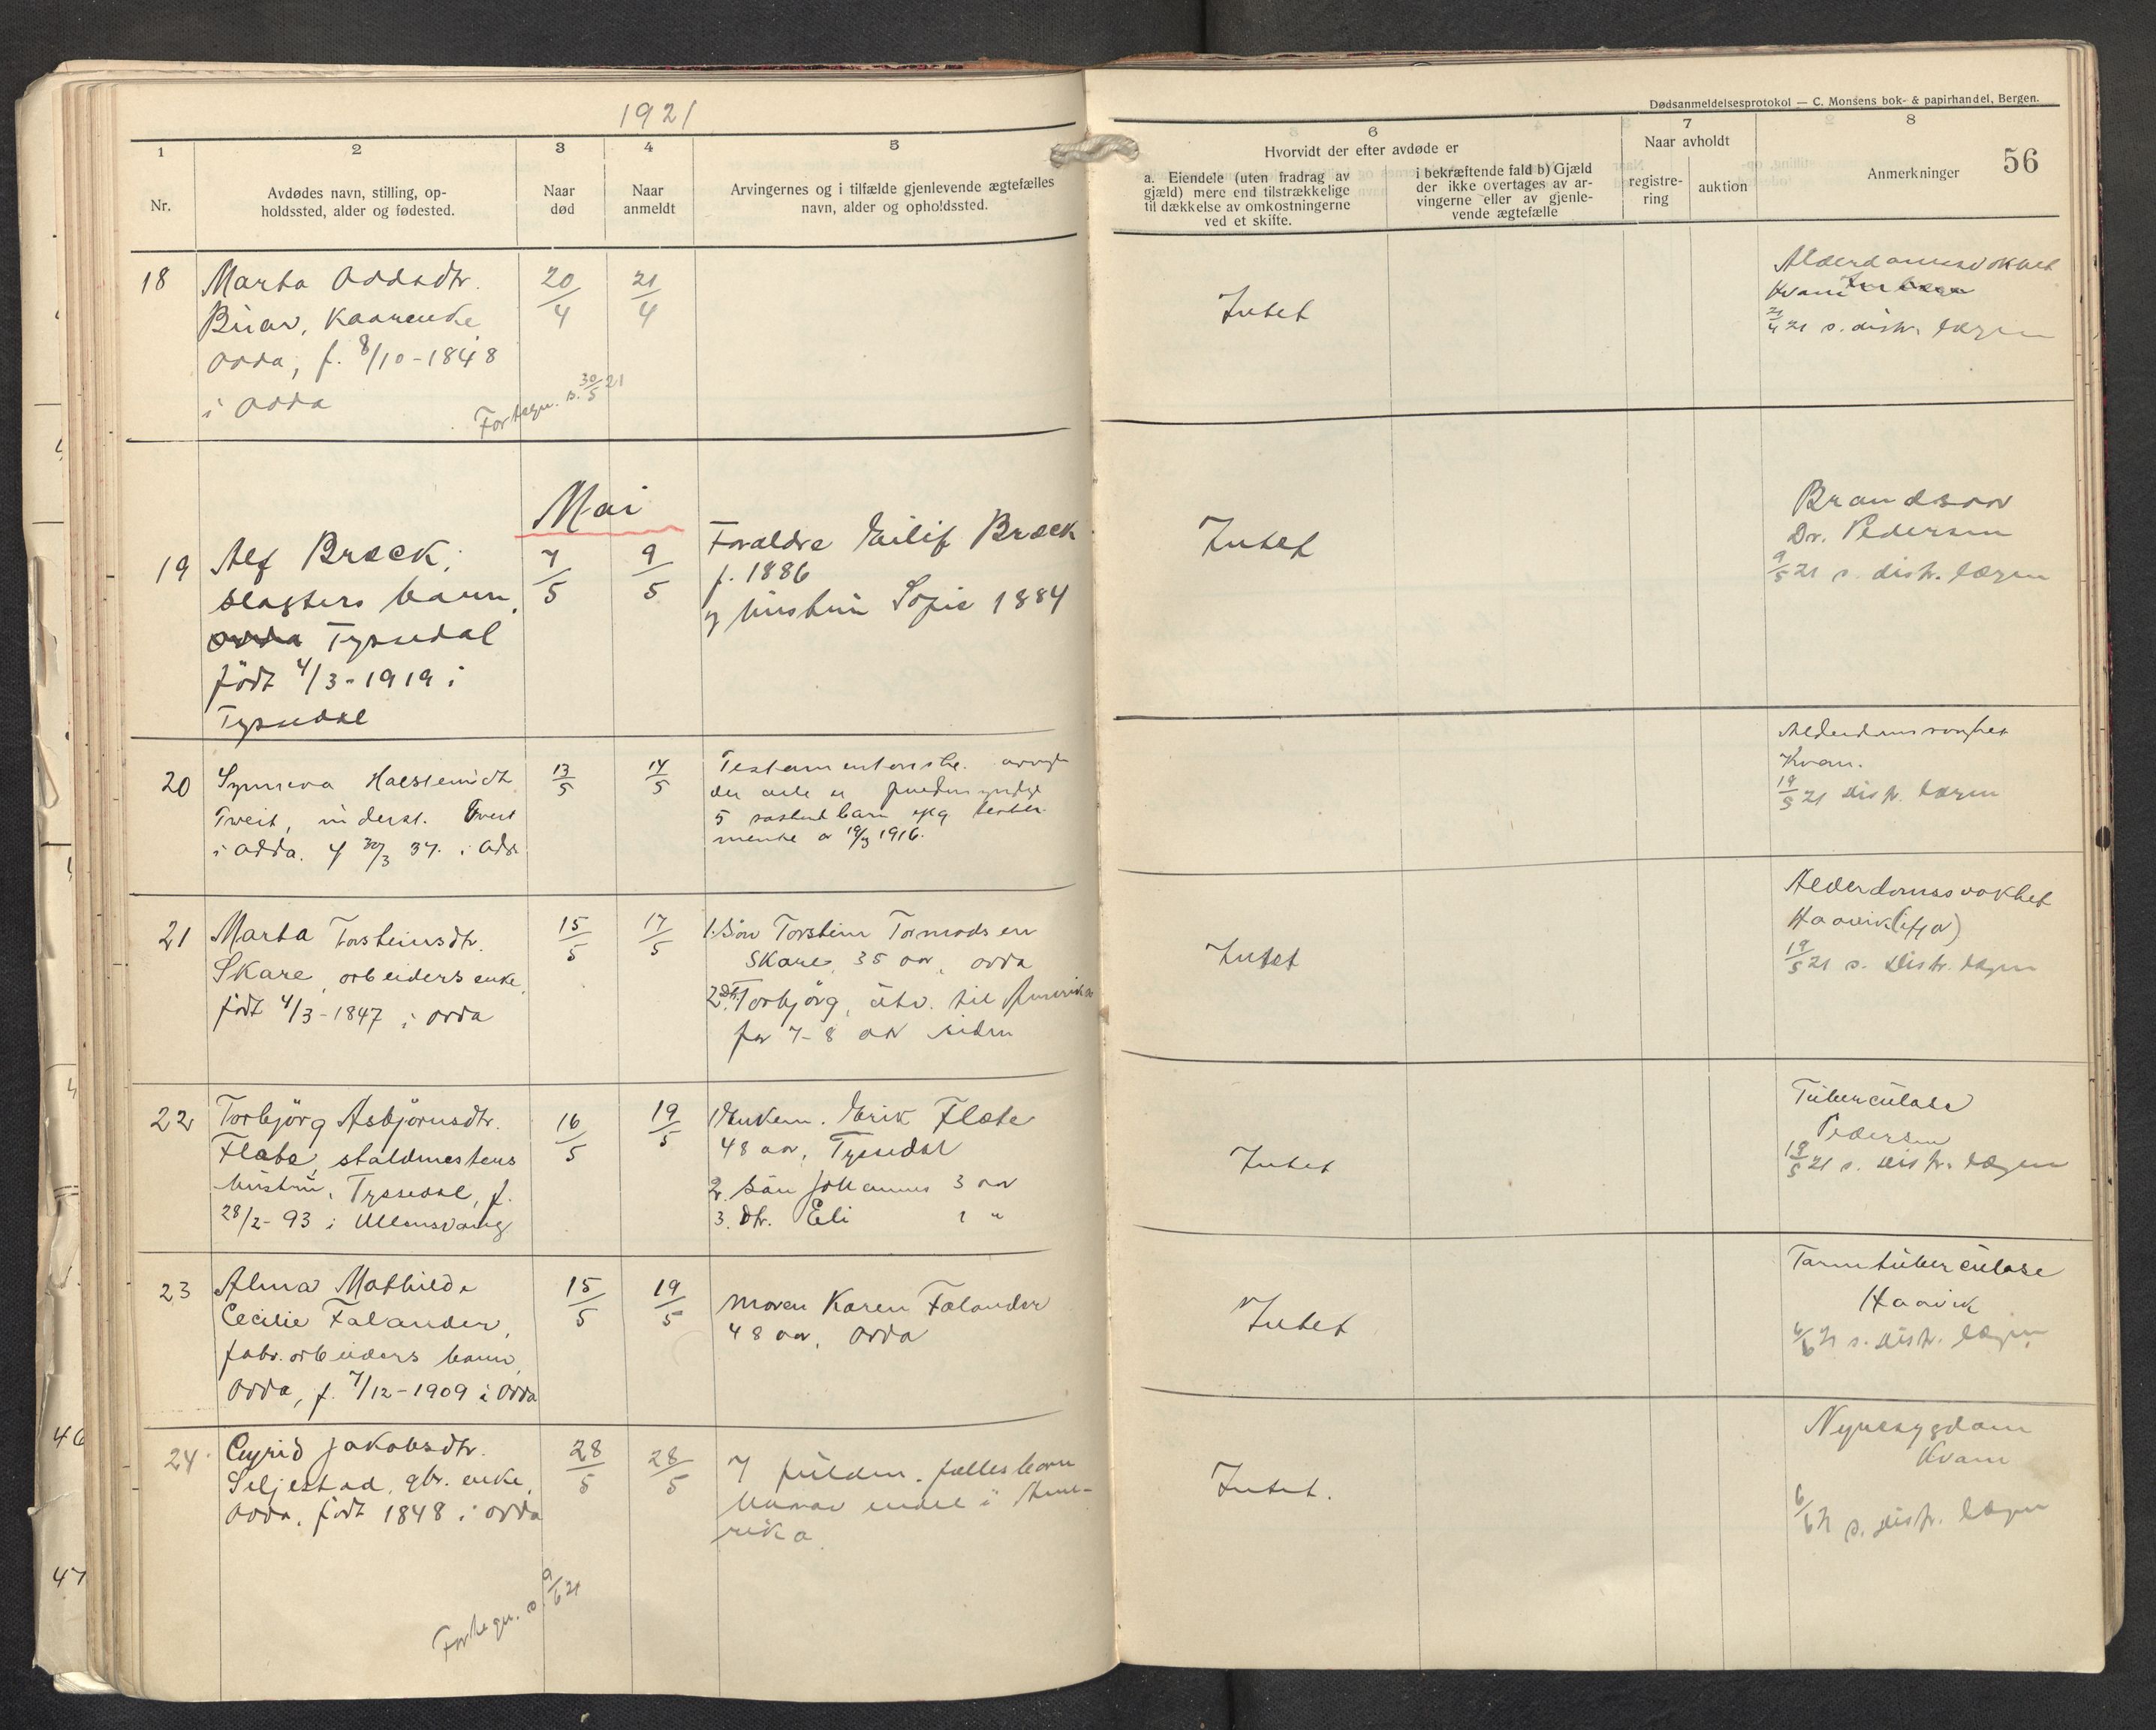 1921
Dødsanmeldelsesprotokol — C. Monsens bok- & papirhandel, Bergen.
56
1
Nr.
2
Avdødes navn, stilling, op-
holdssted, alder og fødested.
3
Naar
død
4
Naar
anmeldt
5
Arvingernes og i tilfælde gjenlevende ægtefælles
navn, alder og opholdssted.
6
Hvorvidt der efter avdøde er
a. Eiendele (uten fradrag av
gjæld) mere end tilstrækkelige
til dækkelse av omkostningerne
ved et skifte.
i bekræftende fald b) Gjæld
der ikke overtages av ar-
vingerne eller av gjenle-
vende ægtefælle
7
Naar avholdt
registre-
ring
auktion
8
Anmerkninger
18
Marta Oddsdtr.
Buar, kaarenke
Odda, f. 8/10-1848
i Odda
20/4
21/4
Fortegn. s. 30/5 21
Intet
Alderdomssvakhet
Kvam
21/4 21 s. distr. lægen
Mai
19
Alf Bræck,
slagters barn,
Odda Tyssedal
født 4/3-1919 i
Tyssedal
7/5
9/5
Foræeldre Eilif Bræck
f. 1886
og hustru Sofie 1884
Intet
Brandsaar
Dr. Pedersen
9/5 21 s. distr. lægen
20
Tveit, inderst. Tveit
i Odda. f 30/3 37. i Odda
13/5
14/5
5 søsterbarn iflg testa-
mente av 19/3 1916.
Kvam.
19/5 21 distr. lægen
21
Marta Torsteinsdtr.
Skare, arbeiders enke,
født 4/3-1847 i Odda
15/5
17/5
1. Søn Torstein Tormodsen
Skare, 35 aar, Odda
2. Dtr. Torbjörg, utv. til Amerika
for 7-8 aar siden
Intet
Alderdomssvakhet
Haavik
19/5 21 s. Distr. lægen
22
Torbjörg Asbjörnsdtr.
Flate, staldmesters
hustru, Tyssedal, f.
28/2-93 i Ullensvang
16/5
19/5
1 Enkem. Erik Flate
48 aar, Tyssedal
2. sön Johannes 3 aar
3. dtr. Eli 1 "
Intet
Tuberculose
Pedersen
19/5 21 s. distr. lægen
23
Alma Mathilde
Cecilie Falander,
fabr. arbeiders barn,
Odda, f. 7/12-1909 i Odda
15/5
19/5
Moren Karen Falander
48 aar, Odda
Intet
Tarmtuberculose
Haavik
6/6 21 s. distr. lægen
24
Sigrid Jakobsdtr.
Seljestad, gbr. enke,
Odda, født 1848 i Odda
28/5
28/5
7 fuldm. fællesbarn
hvorav endel i Ame-
rika
Fortegn. s. 9/6 21
Intet.
Nyresygdom
Kvam
6/6 21 s. distr. lægen
46
47